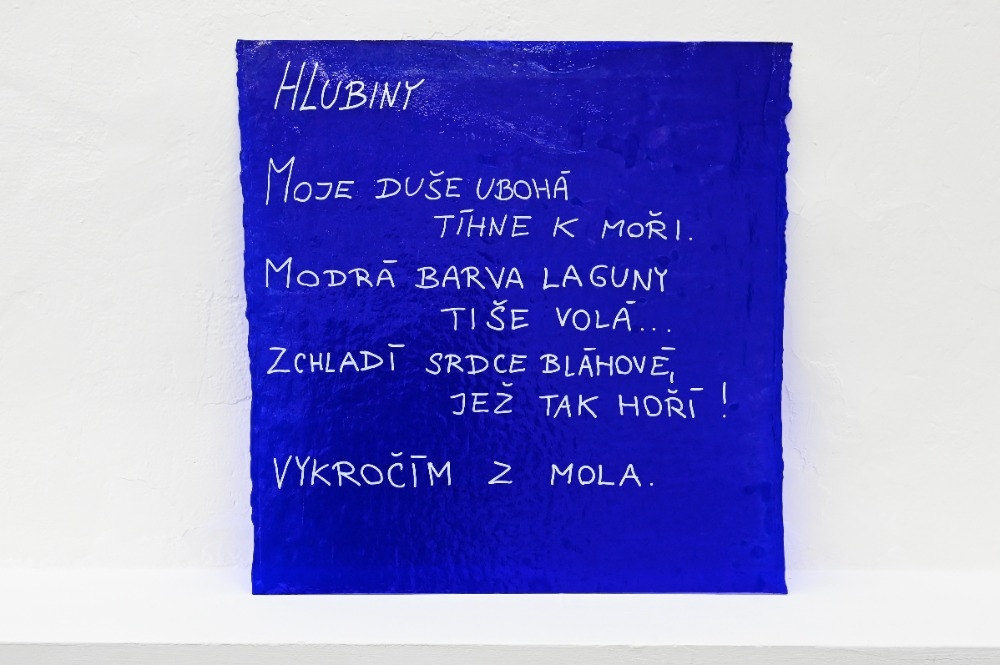 HLUBINY
MOJE DUŠE UBOHÁ
TÍHNE K MOŘI.
MODRÁ BARVA LAGUNY
TIŠE VOLÁ...
ZCHLADÍ SRDCE BLÁHOVÉ,
JEŽ TAK HOŘÍ !
VYKROČÍM Z MOLA.